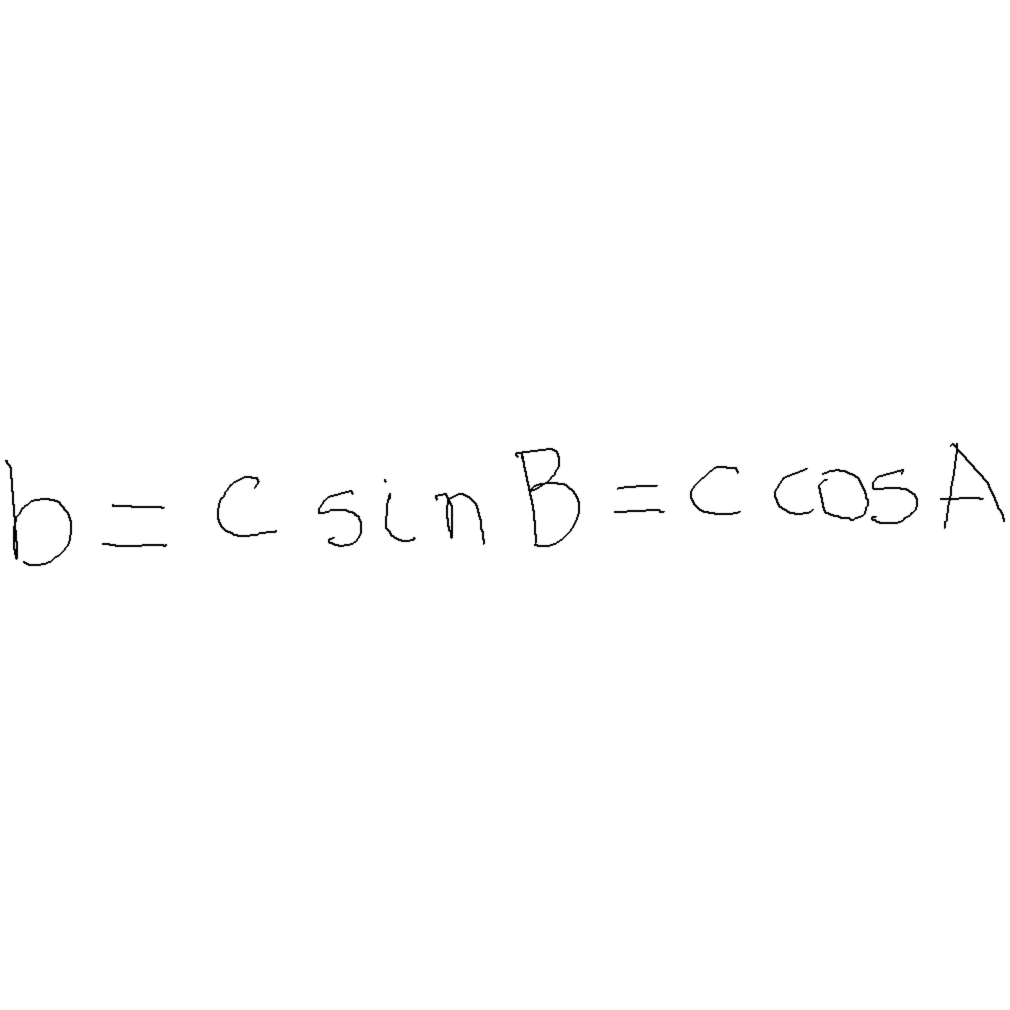 b = c sin B = c cos A